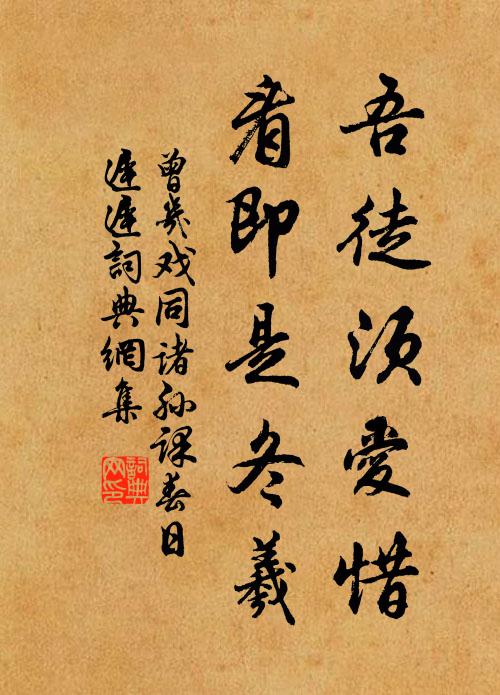 吾徒须爱惜
看即是冬羲
曾几戏同诸孙课春日
遲遲詞典網集
詞典
网印